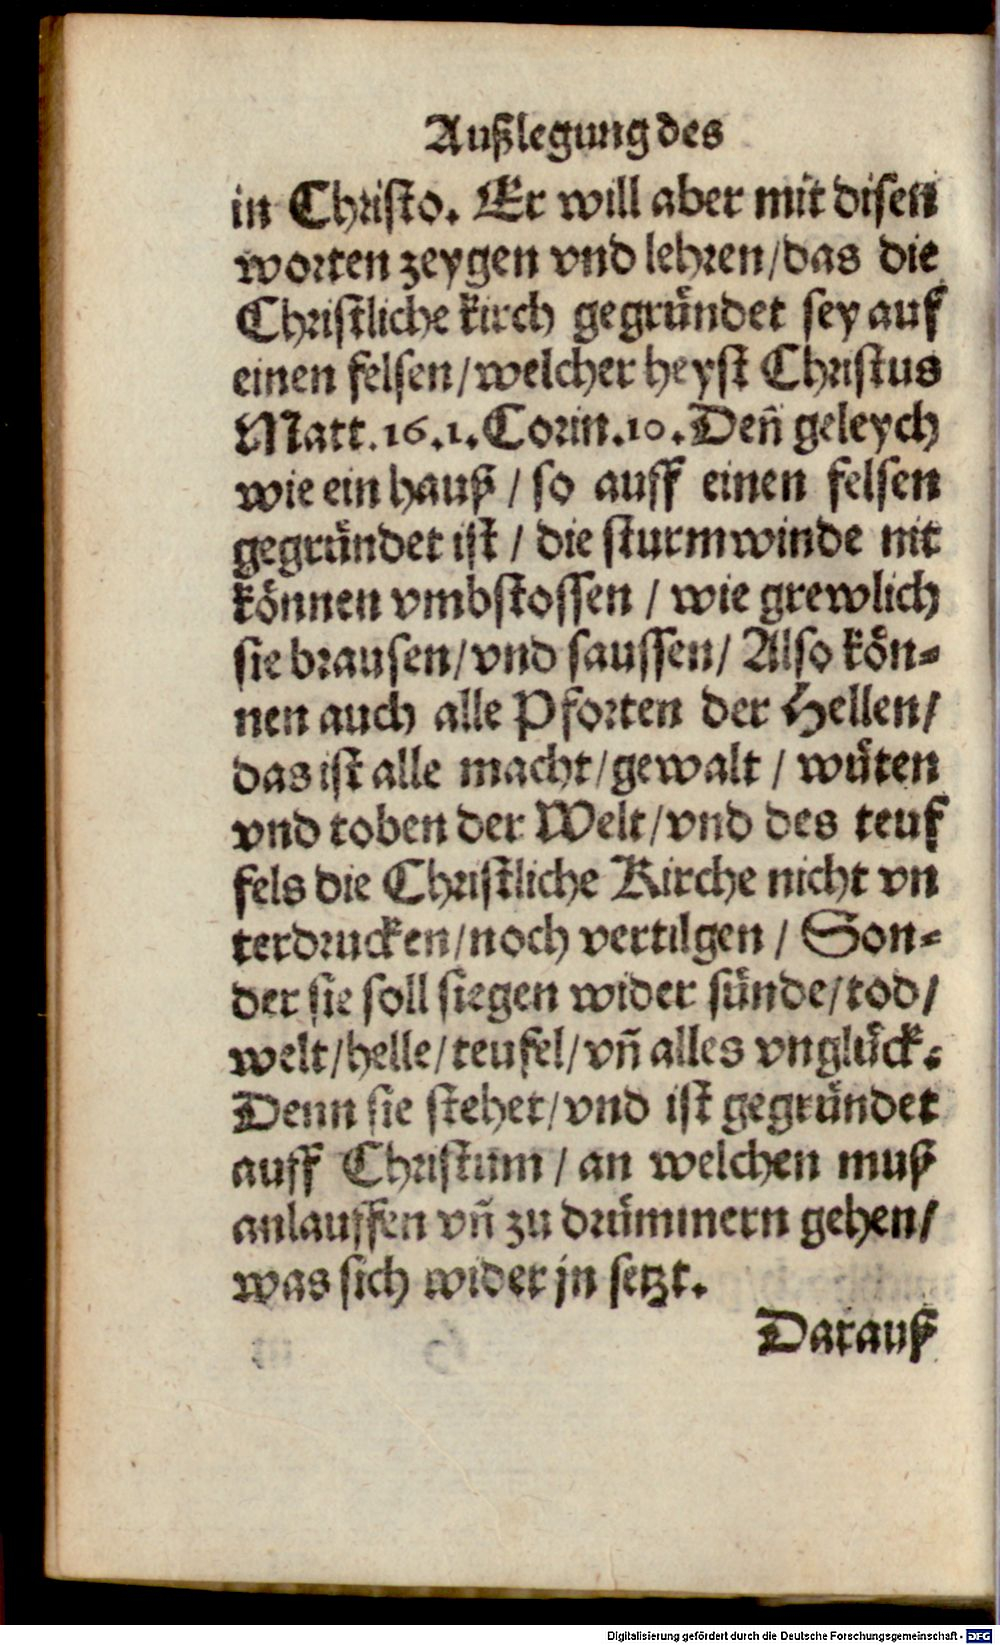 Außlegung des
in Christo. Er will aber mit disen
worten zeygen vnd lehren/das die
Christliche kirch gegründet sey auf
einen felsen/welcher heyst Christus
Matt.16.1.Corin.10.Deñ geleych
wie ein hauß / so auff einen felsen
gegründet ist / die sturmwinde nit
können vmbstossen / wie grewlich
sie brausen/vnd saussen/ Also kön-
nen auch alle Pforten der Hellen/
das ist alle macht/gewalt / wüten
vnd toben der Welt/vnd des teuf
fels die Christliche Kirche nicht vn
terdrucken/noch vertilgen / Son-
der sie soll siegen wider sünde/tod/
welt/helle/teufel/vñ alles vnglück.
Denn sie stehet/vnd ist gegründet
auff Christum / an welchen muß
anlauffen vñ zu drümmern gehen/
was sich wider jn setzt.
Darauß
Digitalisierung gefördert durch die Deutsche Forschungsgemeinschaft - DFG